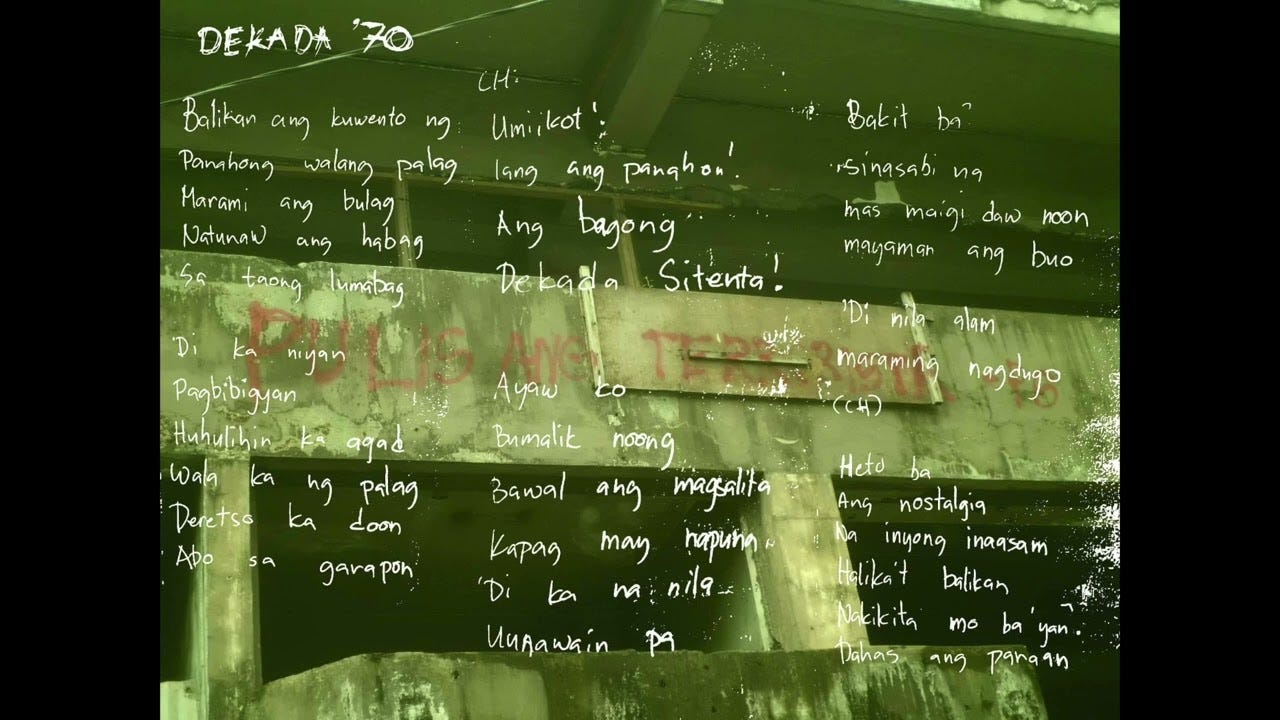 DEKADA '70
Balikan ang kuwento ng
Panahong walang palag
Marami ang bulag
Natunaw ang habag
Sa taong lumabag
'Di ka niyan
Pagbibigyan
Huhulihin ka agad
Wala ka ng palag
Deretso ka doon
Abo sa garapon
CH:
Umiikot!
lang ang panahon!
Ang bagong
Dekada Sitenta!
Ayaw co
Bumalik noong
Bawal ang magsalita
Kapag may napuna
'Di ka na nila
Uunawain pa
Bakit ba
sinasabi na
mas maigi daw noon
mayaman ang buo
'Di nila alam
maraming nagdugo
(CH)
Heto ba
Ang nostalgia
Na inyong inaasam
Halika't balikan
Nakikita mo ba 'yan?
Dahas ang paraan
PULIS ANG